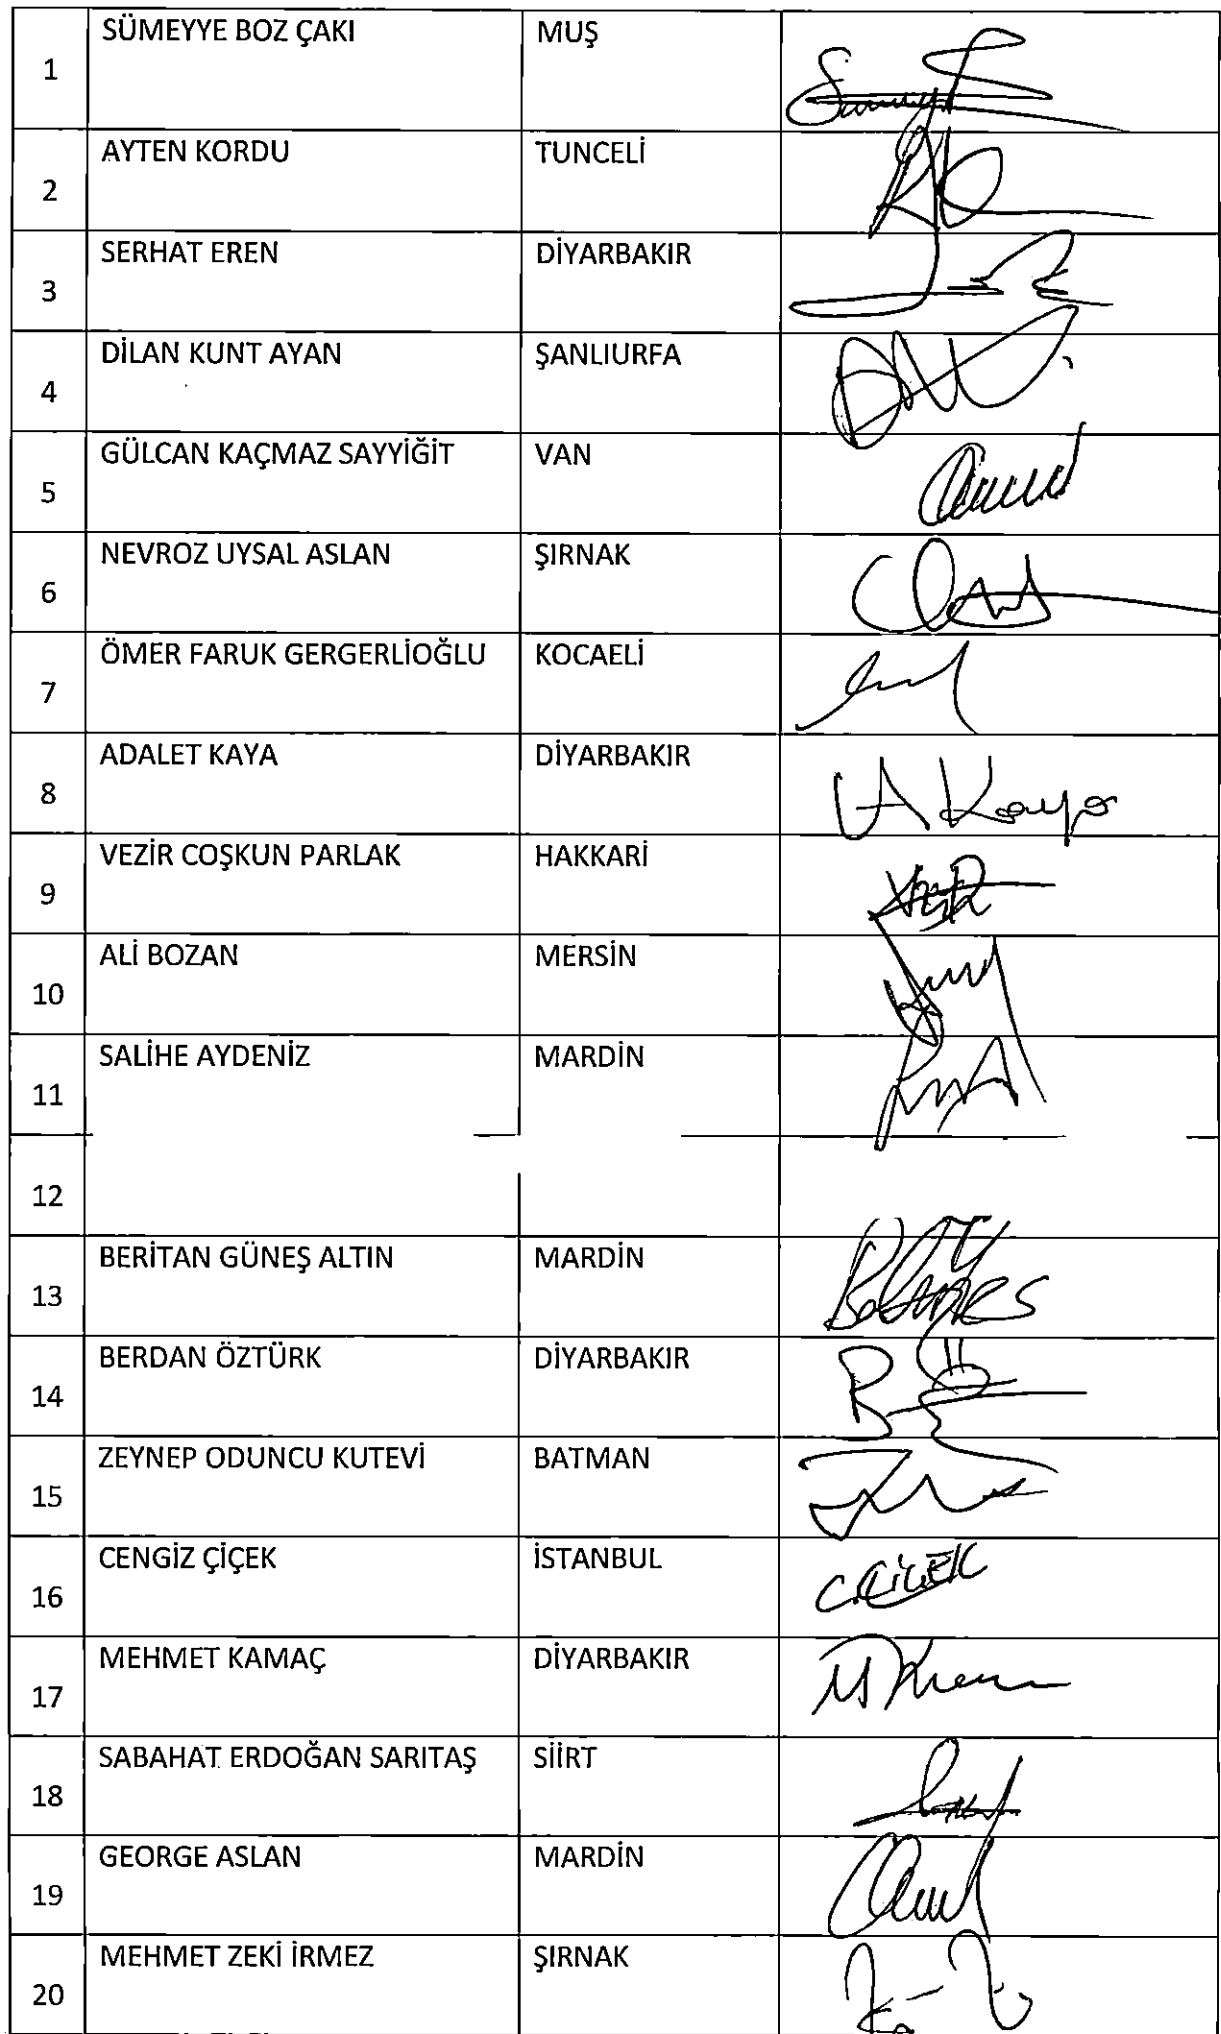 1 SÜMEYYE BOZ ÇAKI MUŞ
2 AYTEN KORDU TUNCELİ
3 SERHAT EREN DİYARBAKIR
4 DİLAN KUNT AYAN ŞANLIURFA
5 GÜLCAN KAÇMAZ SAYYİĞİT VAN
6 NEVROZ UYSAL ASLAN ŞIRNAK
7 ÖMER FARUK GERGERLİOĞLU KOCAELİ
8 ADALET KAYA DİYARBAKIR A Kaya
9 VEZİR COŞKUN PARLAK HAKKARİ
10 ALİ BOZAN MERSİN
11 SALİHE AYDENİZ MARDİN
12
13 BERİTAN GÜNEŞ ALTIN MARDİN
14 BERDAN ÖZTÜRK DİYARBAKIR
15 ZEYNEP ODUNCU KUTEVİ BATMAN
16 CENGİZ ÇİÇEK İSTANBUL C.ÇİÇEK
17 MEHMET KAMAÇ DİYARBAKIR
18 SABAHAT ERDOĞAN SARITAŞ SİİRT
19 GEORGE ASLAN MARDİN
20 MEHMET ZEKİ İRMEZ ŞIRNAK